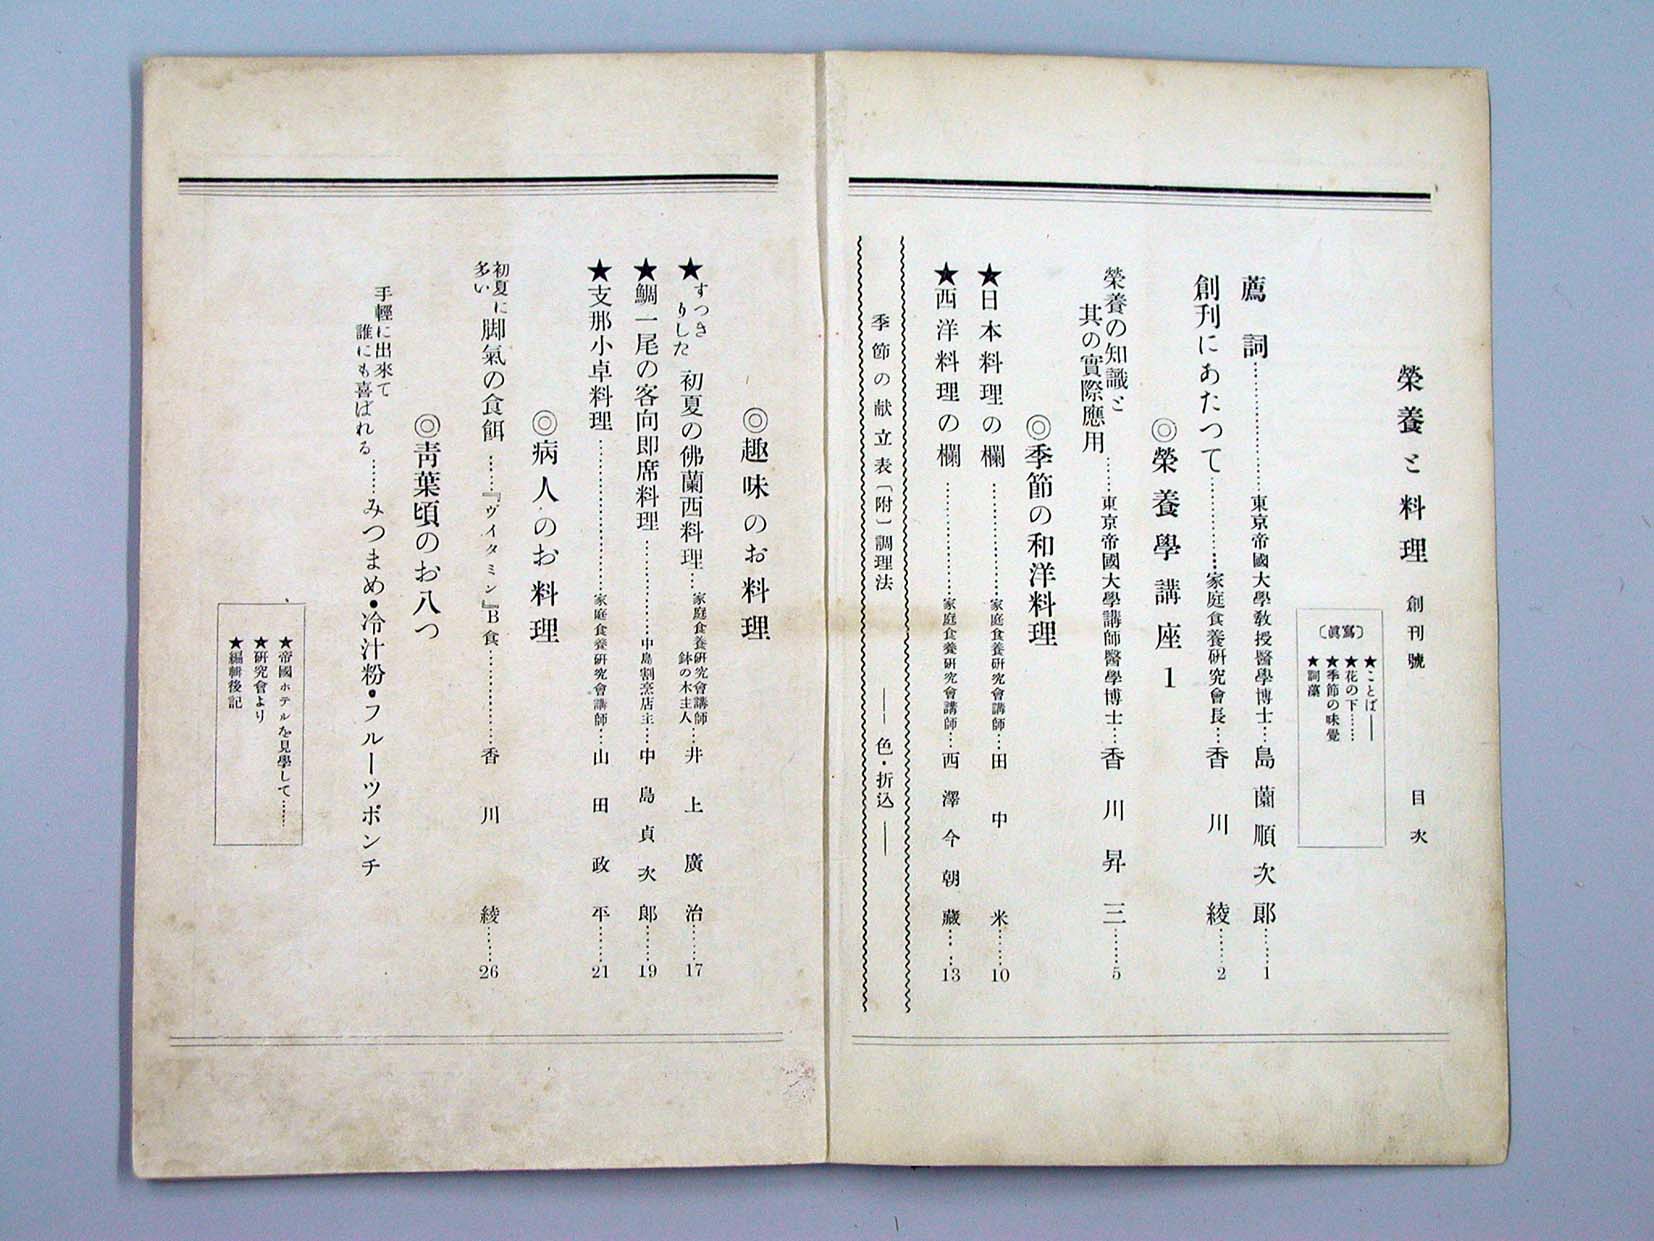 榮養と料理 創刊號 目次
〔寫眞〕
★ことば――
★花の下……
★季節の味覺
★詞藻
薦詞……………東京帝國大學敎授醫學博士…島薗順次郎……1
創刊にあたつて…………家庭食養硏究會長…香川綾……2
◎榮養學講座1
榮養の知識と
其の實際應用……東京帝國大學講師醫學博士…香川昇三……5
◎季節の和洋料理
★日本料理の欄……………家庭食養硏究會講師…田中米……10
★西洋料理の欄……………家庭食養硏究會講師…西澤今朝藏……13
季節の献立表〔附一調理法 ――色・折込――
◎趣味のお料理
★すつきりした初夏の佛蘭西料理…家庭食養硏究會講師 鉢の木主人…井上廣治……17
★鯛一尾の客向即席料理……………中島割烹店主…中島貞次郎……19
★支那小卓料理……………家庭食養硏究會講師…山田政平……21
◎病人のお料理
初夏に多い脚氣の食餌……『ヴイタミン』B食…………香川綾……26
◎靑葉頃のお八つ
手輕に出來て
誰にも喜ばれる……みつまめ・冷汁粉・フルーツポンチ
★帝國ホテルを見學して……
★硏究會より
★編輯後記